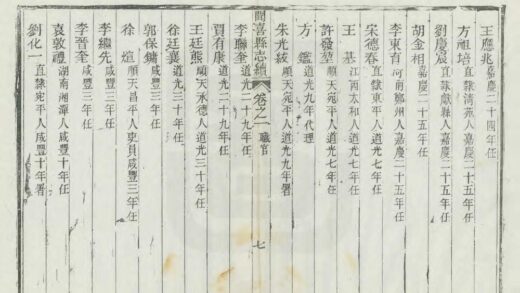 王應兆嘉慶二十四年任
方祖培直隸清苑人嘉慶二十五年任
劉慶宸直隸獻縣人嘉慶二十五年任
胡金相嘉慶二十五年任
李東育河南鄭州人嘉慶二十五年任
宋德春直隸東平人道光七年任
王 基江西太和人道光七年任
許發堃順天宛平人道光七年任
方 鑑道光九年代理
朱光紱順天宛平人道光九年署
聞喜縣志續 卷之一 職官 七
李聯奎道光二十九年任
賈有康道光二十九年任
王廷熊順天承德人道光三十年任
徐廷襄道光三十年任
郭保鏞咸豐三年任
徐 煊順天昌平人吏員咸豐三年任
李繼先咸豐三年任
李晉奎咸豐十年任
袁敦禮湖南湘潭人咸豐十年任
劉化一直隸宛平人咸豐十年署